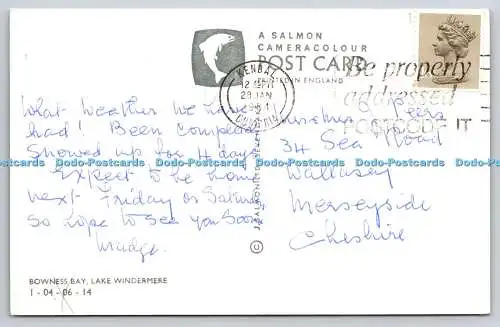 A SALMON
CAMERACOLOUR
POST CARD
PRINTED IN ENGLAND
KENDAL
12 PM
29 JAN
CUMBRIA
Be properly
addressed
POSTCODE IT
What weather we have
had! Been completely
Snowed up for 4 days
Expect to be home
next Friday or Saturday
so hope to see you soon
Madge.
34 Sea Road
Wallasey
Merseyside
Cheshire
J. SALMON LTD. SEVENOAKS
©
BOWNESS BAY, LAKE WINDERMERE
1 - 04 - 06 - 14
Dodo-Postcards.com Dodo-Postcards.com Dodo-Postcards.com Dodo-Postcards.com